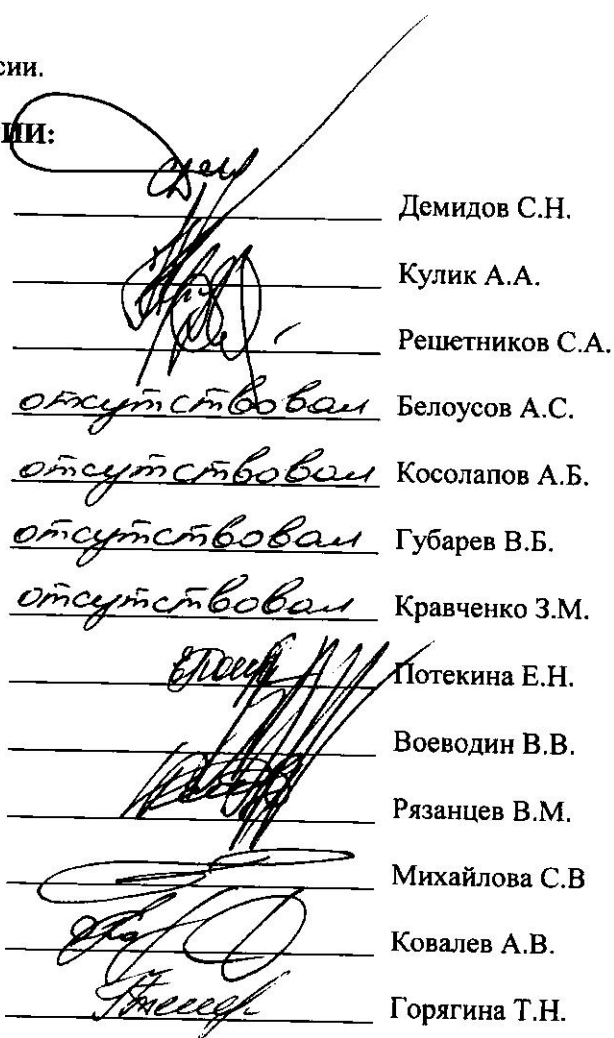 сии.
ИИ:
Демидов С.Н.
Кулик А.А.
Решетников С.А.
отсутствовал Белоусов А.С.
отсутствовал Косолапов А.Б.
отсутствовал Губарев В.Б.
отсутствовал Кравченко З.М.
Потекина Е.Н.
Воеводин В.В.
Рязанцев В.М.
Михайлова С.В
Ковалев А.В.
Горягина Т.Н.